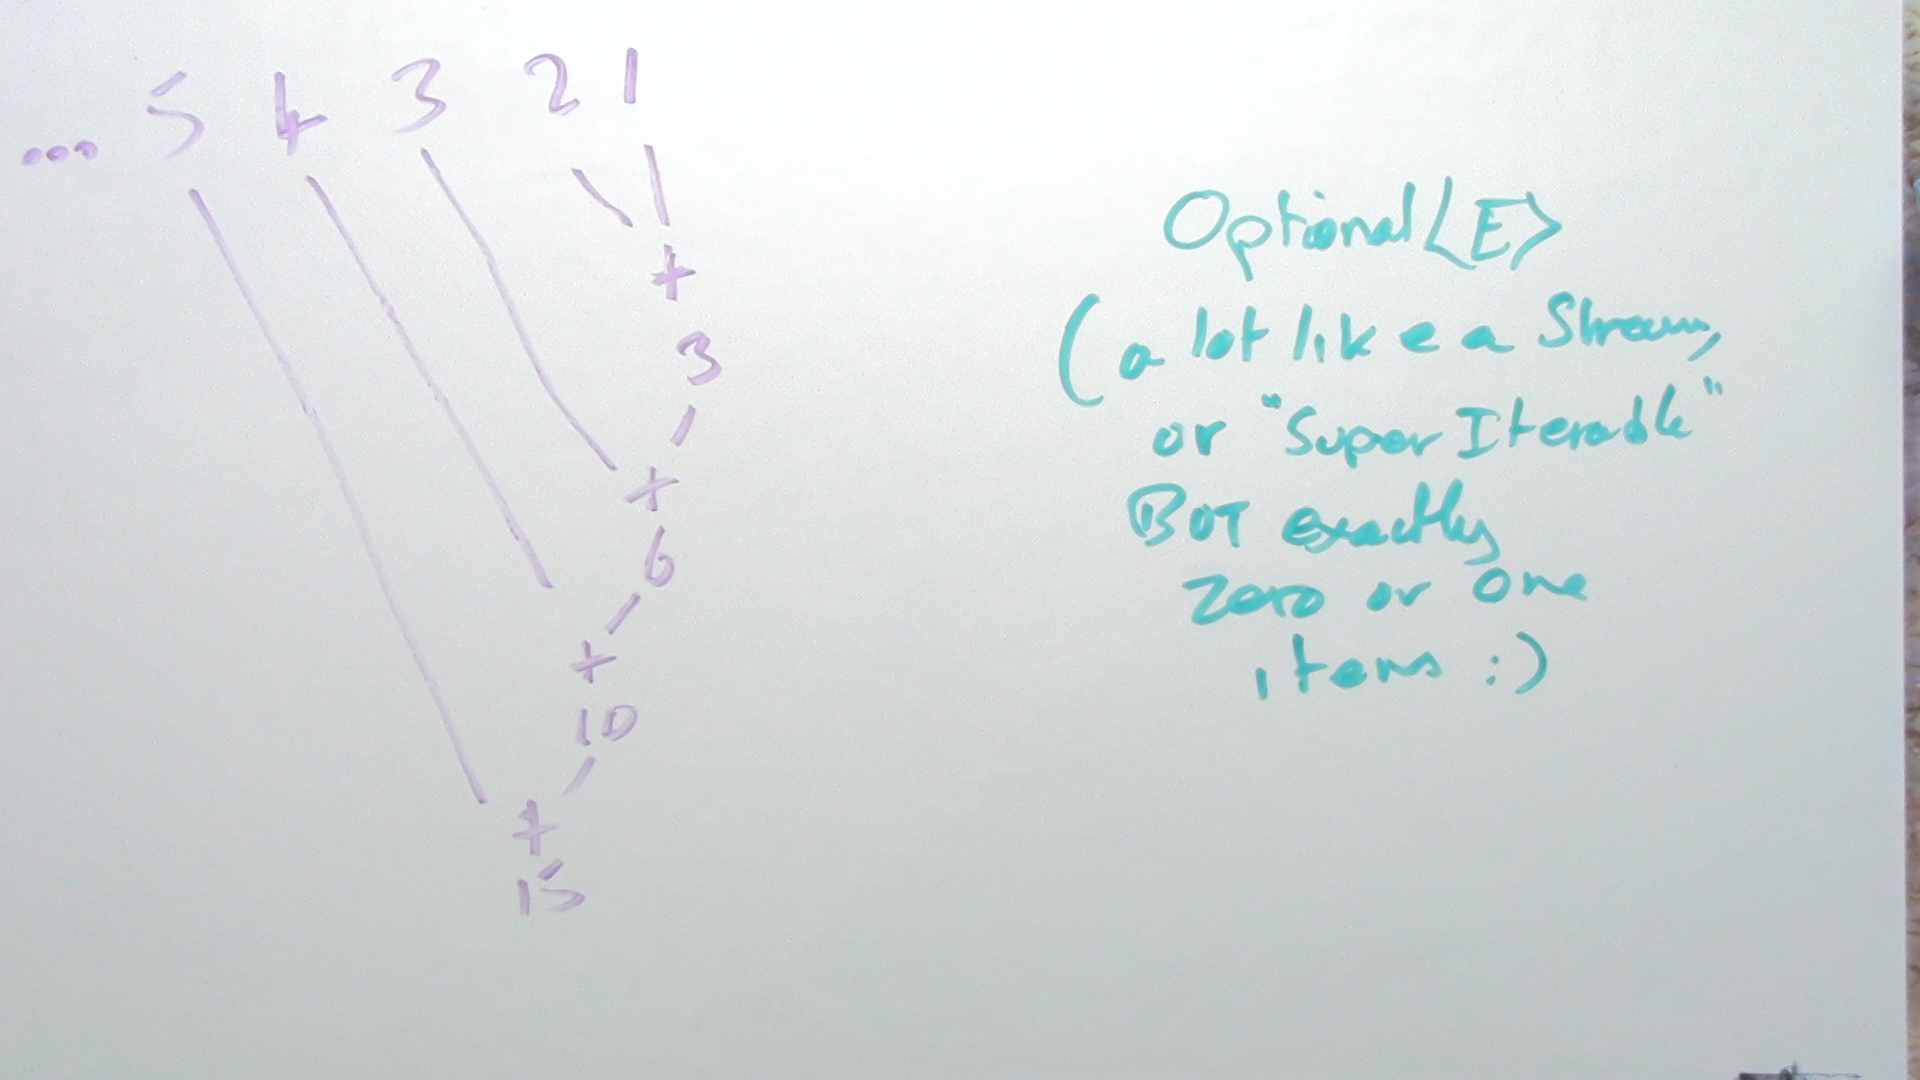 ... 5 4 3 2 1
+
3
+
6
+
10
+
15
Optional<E>
(a lot like a Stream,
or "Super Iterable"
BUT exactly
zero or one
items :)